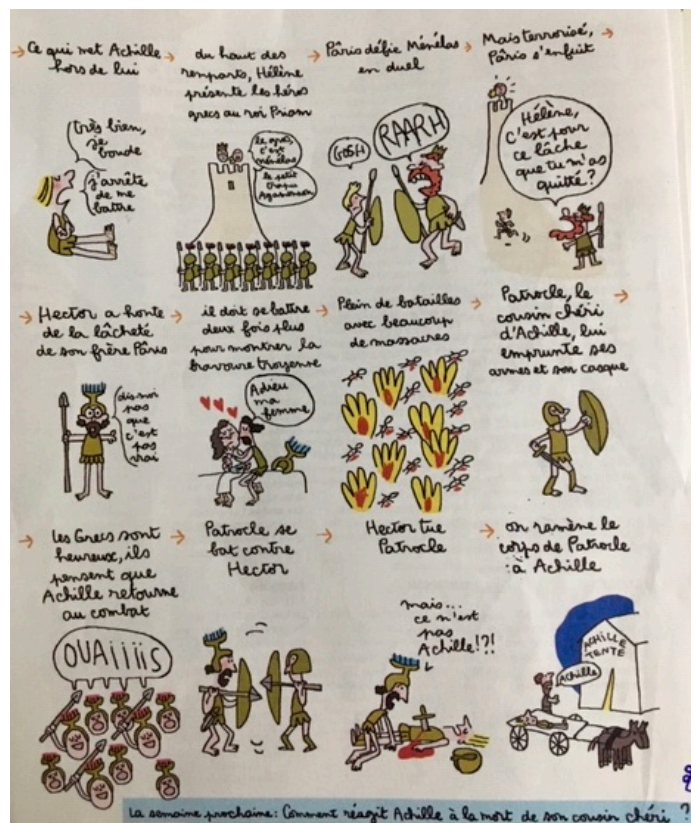 Ce qui met Achille
hors de lui
très bien,
je
boude
j'arrête
de me
battre
du haut des
remparts, Hélène
présente les héros
grecs au roi Priam
le gros,
c'est
Ménélas
le petit
trapu
Agamemnon
Pâris défie Ménélas
en duel
GOSH
RAARH
Mais terrorisé,
Pâris s'enfuit
Hélène,
c'est pour
ce lâche
que tu m'as
quitté?
Hector a honte
de la lâcheté
de son frère Pâris
dis-moi
pas
que
c'est
pas
vrai
il doit se battre
deux fois plus
pour montrer la
bravoure troyenne
Adieu
ma
femme
Plein de batailles
avec beaucoup
de massacres
Patrocle, le
cousin chéri
d'Achille, lui
emprunte ses
armes et son casque
les Grecs sont
heureux, ils
pensent que
Achille retourne
au combat
OUAiiiiS
Patrocle se
bat contre
Hector
Hector tue
Patrocle
mais...
ce n'est
pas
Achille!?!
on ramène le
corps de Patrocle
à Achille
ACHILLE
TENTE
Achille
La semaine prochaine: Comment réagit Achille à la mort de son cousin chéri ?